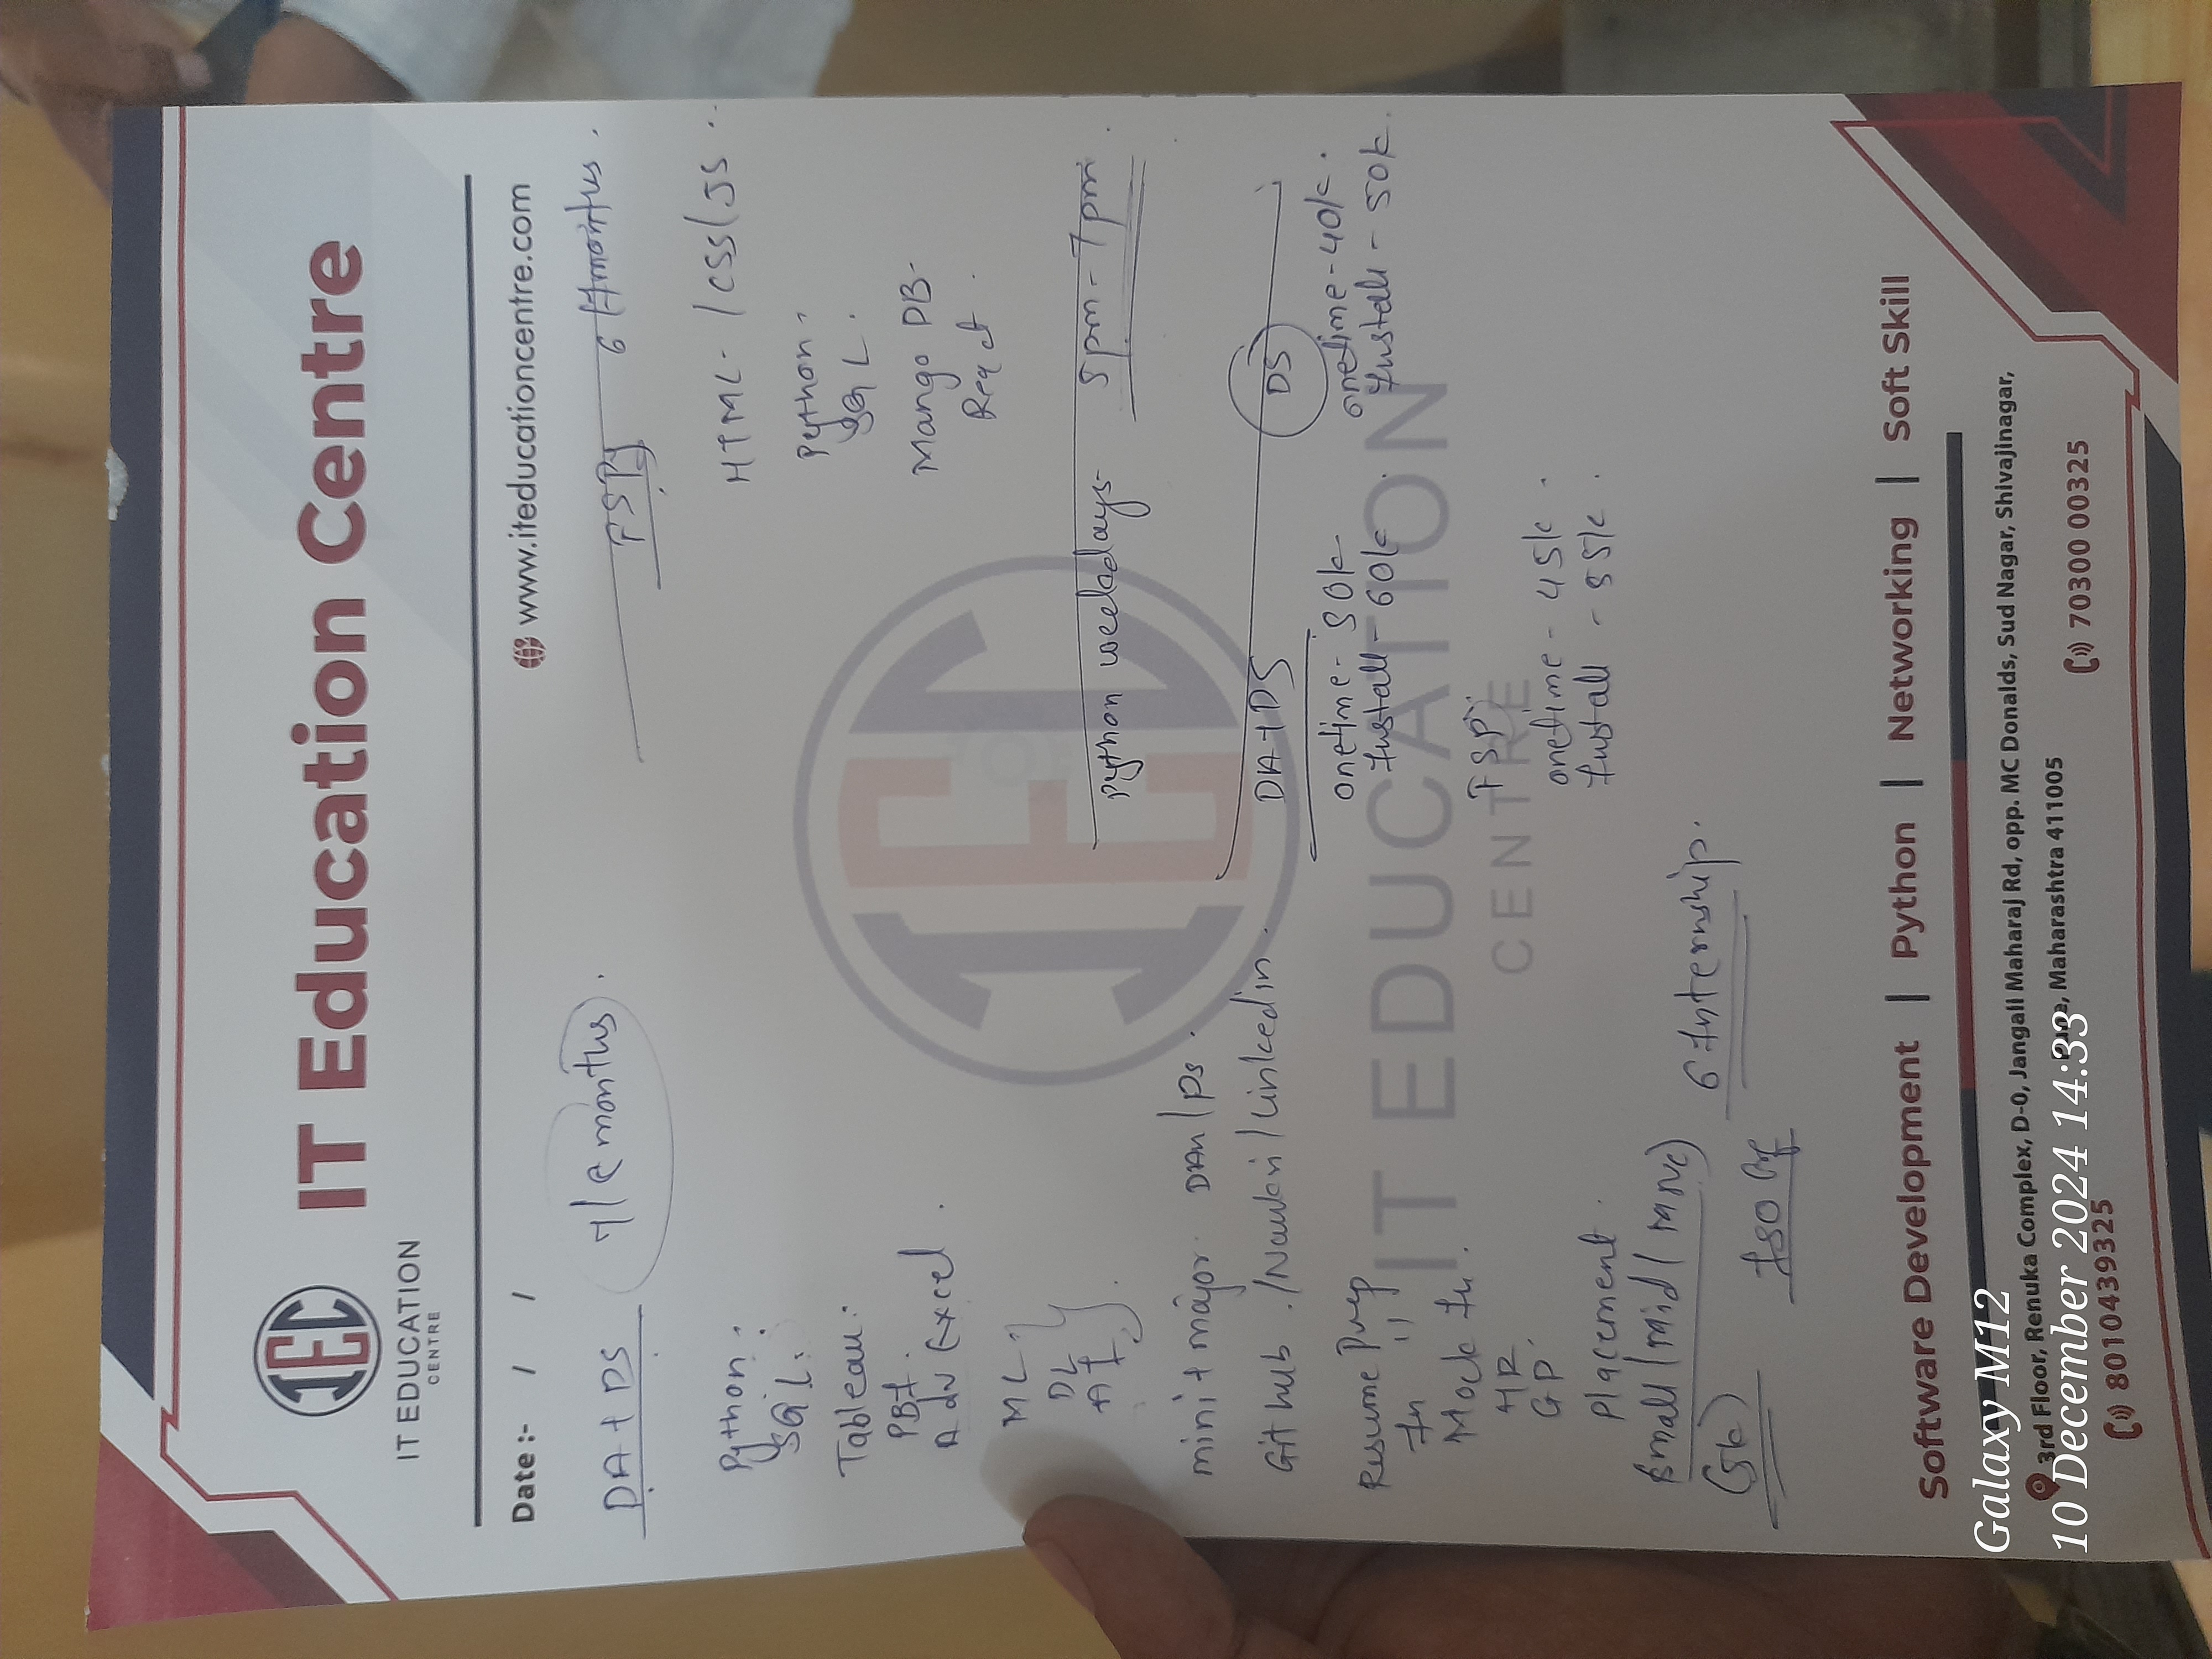 IEC
IT EDUCATION
CENTRE
IT Education Centre
www.iteducationcentre.com
Date :- / /
DA+DS
months.
FSPy 6 months.
Python.
SQL.
Tableau.
PBI.
Adv Excel.
ML
DL
AI
HTML- /CSS/JS.
Python.
SQL.
Mango DB-
React.
Python weekdays- 5pm-7pm.
mini+major. DAn/Ds.
Git hub./Naukri/Linkedin.
Resume Prep
In "
Mock In.
HR
GD.
Placement.
small/mid/mnc)
(5k)
6 Internship.
ISO
DA+DS
onetime- 50k
Install- 60k
DS
onetime-40k.
Install- 50k.
FSP
onetime- 45k.
Install - 55k.
IEC
IT EDUCATION
CENTRE
Software Development | Python | Networking | Soft Skill
3rd Floor, Renuka Complex, D-0, Jangali Maharaj Rd, opp. MC Donalds, Sud Nagar, Shivajinagar,
Pune, Maharashtra 411005
8010439325
70300 00325
Galaxy M12
10 December 2024 14:33